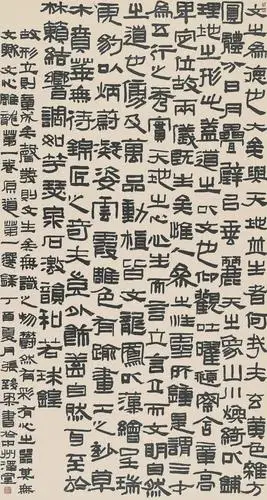 文之為德也大矣與天地並生者何哉夫玄黃色雜方
圓體分日月疊璧以垂麗天之象山川煥綺以鋪
理地之形此蓋道之文也仰觀吐曜俯察含章高
卑定位故兩儀既生矣惟人參之性靈所鍾是謂三才
為五行之秀實天地之心心生而言立言立而文明自然
之道也傍及萬品動植皆文龍鳳以藻繪呈瑞
虎豹以炳蔚凝姿雲霞雕色有踰畫工之妙草
木賁華無待錦匠之奇夫豈外飾蓋自然耳至於
林籟結響調如竽瑟泉石激韻和若球鍠
故形立則章成矣聲發則文生矣無識之物鬱然有彩有心之器其無
文歟文心雕龍第一卷原道第一選錄丁酉夏月張書堂